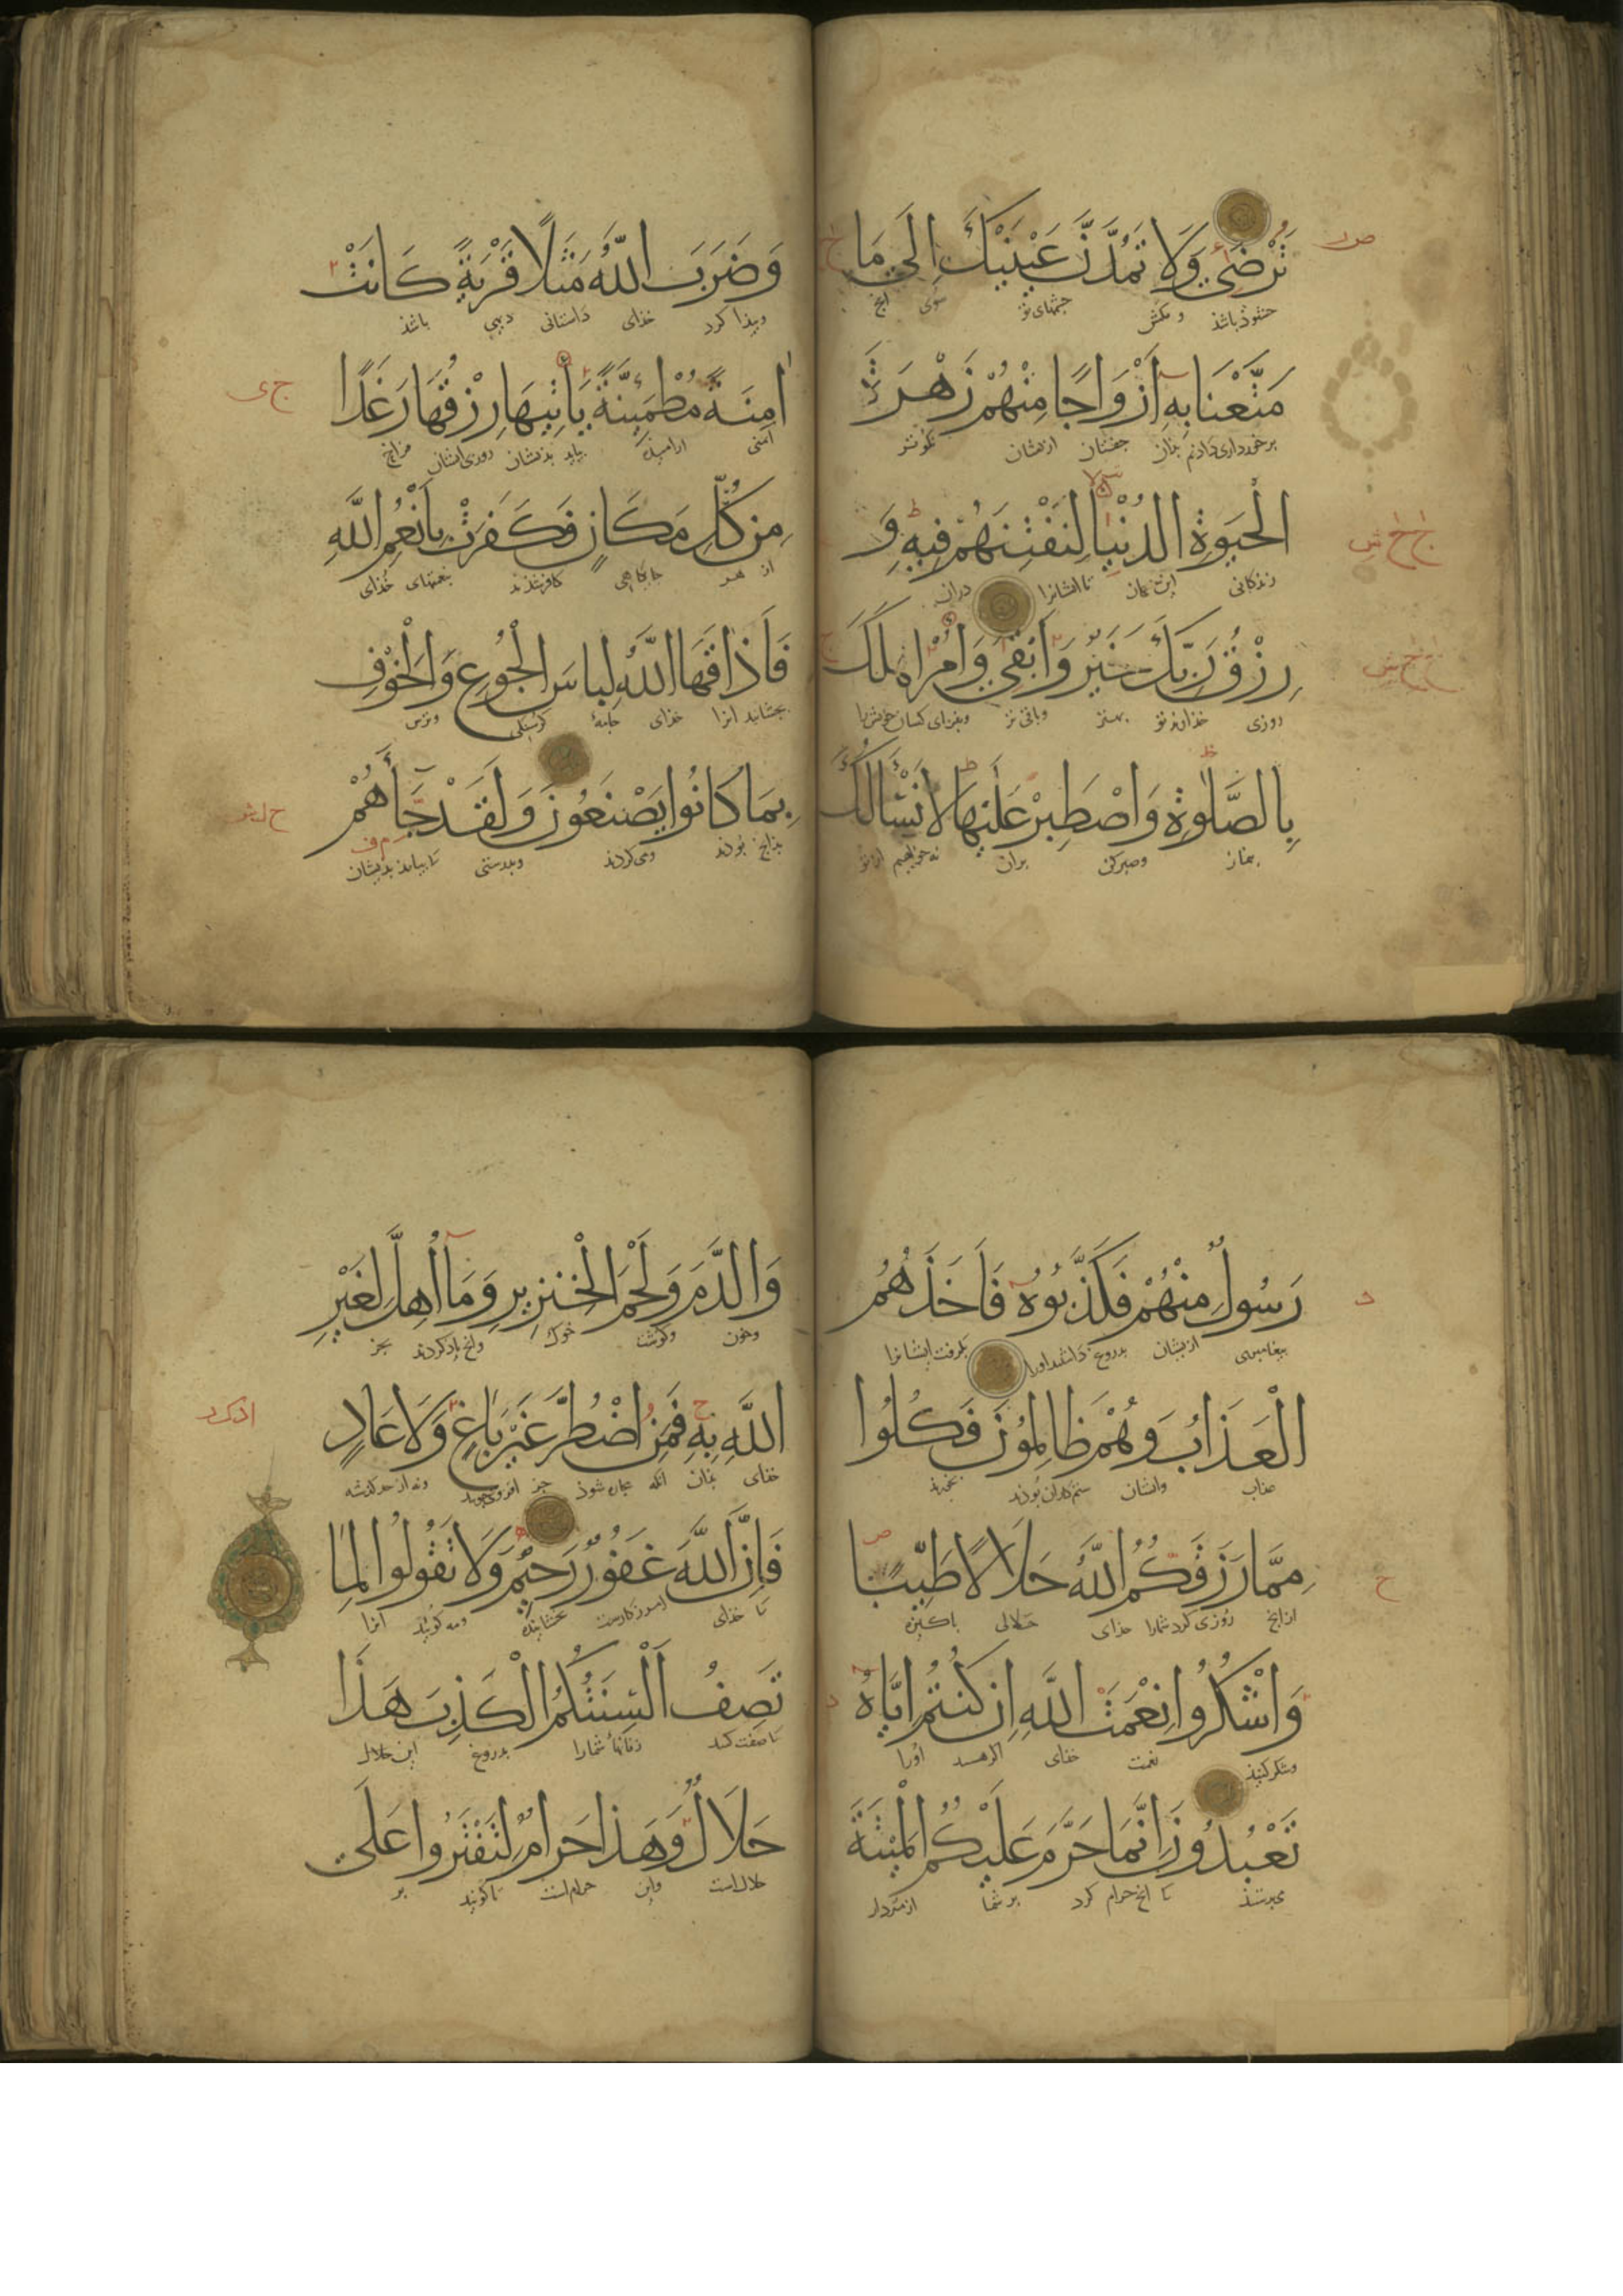 تَرْضَىٰ وَلَا تَمُدَّنَّ عَيْنَيْكَ إِلَىٰ مَا
خشنوذ باشذ و مکش چشمهای تو سوی آنچ
مَتَّعْنَا بِهِ أَزْوَاجًا مِنْهُمْ زَهْرَةَ
برخورداری دادیم بذان جفتان ازیشان
الْحَيَوةِ الدُّنْيَا لِنَفْتِنَهُمْ فِيهِ وَ
زندکانی این جهان تا ایشانرا دران
رِزْقُ رَبِّكَ خَيْرٌ وَأَبْقَىٰ وَأْمُرْ أَهْلَكَ
روزی خذاوند تو بهتر وباقی تر وبفرمای کسان خویش را
بِالصَّلَوةِ وَاصْطَبِرْ عَلَيْهَا لَا نَسْأَلُكَ
بنماز وصبر کن بران نه خواهیم از تو
وَضَرَبَ اللَّهُ مَثَلًا قَرْيَةً كَانَتْ
وپیذا کرد خذای داستانی دیهی باشذ
آمِنَةً مُطْمَئِنَّةً يَأْتِيهَا رِزْقُهَا رَغَدًا
ایمنی ارامیذه بیاید بذیشان روزی ایشان فراخ
مِنْ كُلِّ مَكَانٍ فَكَفَرَتْ بِأَنْعُمِ اللَّهِ
از هر جایکاهی کافر شذند بنعمتهای خذای
فَأَذَاقَهَا اللَّهُ لِبَاسَ الْجُوعِ وَالْخَوْفِ
بچشانید انرا خذای جامهٔ کرسنکی وترس
بِمَا كَانُوا يَصْنَعُونَ وَلَقَدْ جَاءَهُمْ
بذانچ بوذند ومی کردند وبدرستی تا بیامد بذیشان
رَسُولٌ مِنْهُمْ فَكَذَّبُوهُ فَأَخَذَهُمُ
پیغامبری ازیشان بدروغ داشتند اورا بکرفت ایشانرا
الْعَذَابُ وَهُمْ ظَالِمُونَ فَكُلُوا
عذاب وایشان ستم کاران بوذند بخورید
مِمَّا رَزَقَكُمُ اللَّهُ حَلَالًا طَيِّبًا
ازانچ روزی کرد شمارا خذای حلالی پاکیزه
وَاشْكُرُوا نِعْمَتَ اللَّهِ إِنْ كُنْتُمْ إِيَّاهُ
وشکر کنیذ نعمت خذای اکر هستید اورا
تَعْبُدُونَ إِنَّمَا حَرَّمَ عَلَيْكُمُ الْمَيْتَةَ
می پرستیذ تا انچ حرام کرد بر شما از مردار
وَالدَّمَ وَلَحْمَ الْخِنْزِيرِ وَمَا أُهِلَّ لِغَيْرِ
وخون وکوشت خوک وانچ یاد کردند بجز
اللَّهِ بِهِ فَمَنِ اضْطُرَّ غَيْرَ بَاغٍ وَلَا عَادٍ
خذای بذان انکه بیچاره شوذ جز افزونی جوینده ونه از حد کذشته
فَإِنَّ اللَّهَ غَفُورٌ رَحِيمٌ وَلَا تَقُولُوا لِمَا
تا خذای امرزکارست بخشاینده ومه کوئید انرا
تَصِفُ أَلْسِنَتُكُمُ الْكَذِبَ هَذَا
تا صفت کند زبانهاء شمارا بدروغ این حلال
حَلَالٌ وَهَذَا حَرَامٌ لِتَفْتَرُوا عَلَى
حلال است واین حرام است تا کوئید بر